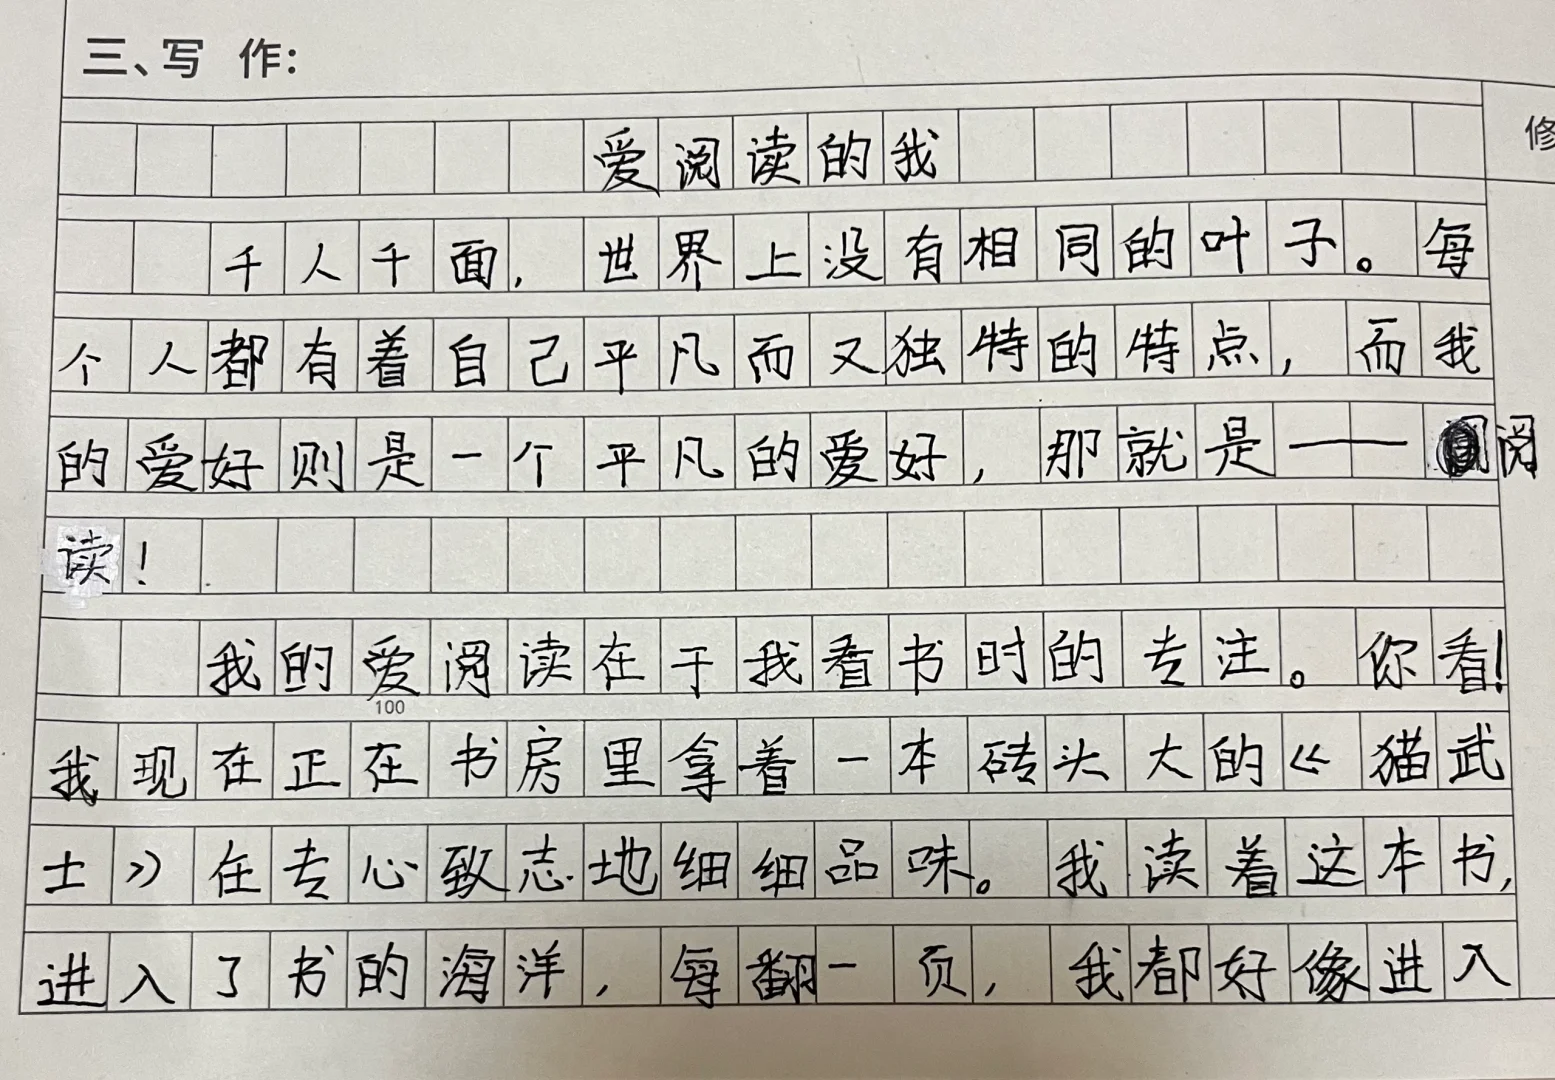 三、写 作：
修
爱阅读的我
千人千面，世界上没有相同的叶子。每
个人都有着自己平凡而又独特的特点，而我
的爱好则是一个平凡的爱好，那就是——阅
读！
我的爱阅读在于我看书时的专注。你看！
100
我现在正在书房里拿着一本砖头大的《猫武
士》在专心致志地细细品味。我读着这本书，
进入了书的海洋，每翻一页，我都好像进入